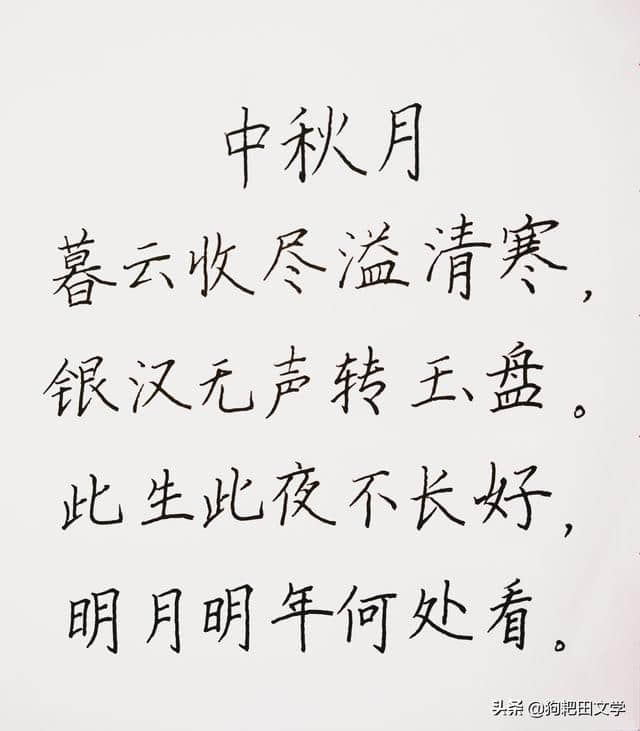 中秋月
暮云收尽溢清寒，
银汉无声转玉盘。
此生此夜不长好，
明月明年何处看。
头条 @狗耙田文学